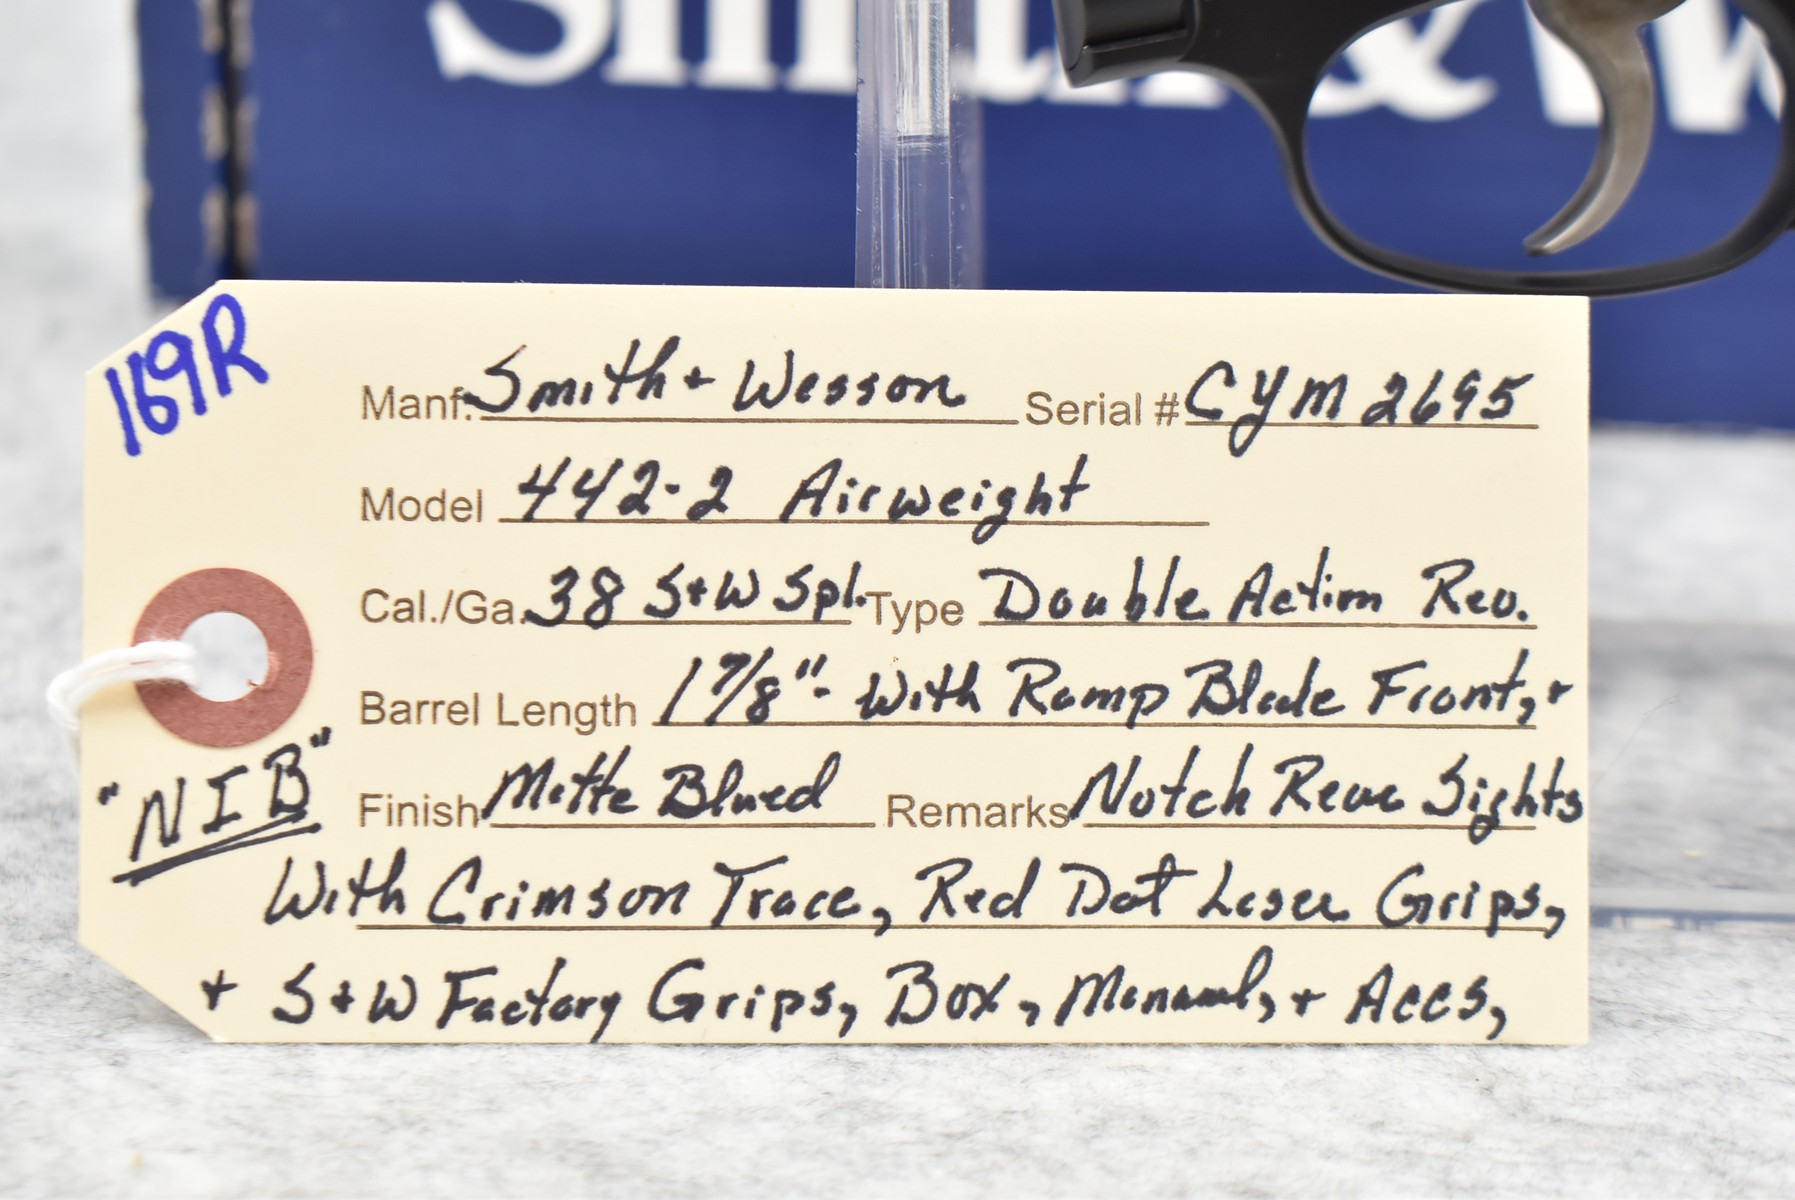 Smith & W
169R
Manf. Smith + Wesson Serial # CYM 2695
Model 442-2 Airweight
Cal./Ga. 38 S+W Spl. Type Double Action Rev.
Barrel Length 1 7/8"- With Ramp Blade Front, +
"NIB"
Finish Matte Blued Remarks Notch Rear Sights
With Crimson Trace, Red Dot Laser Grips,
+ S+W Factory Grips, Box, Manual, + Accs,